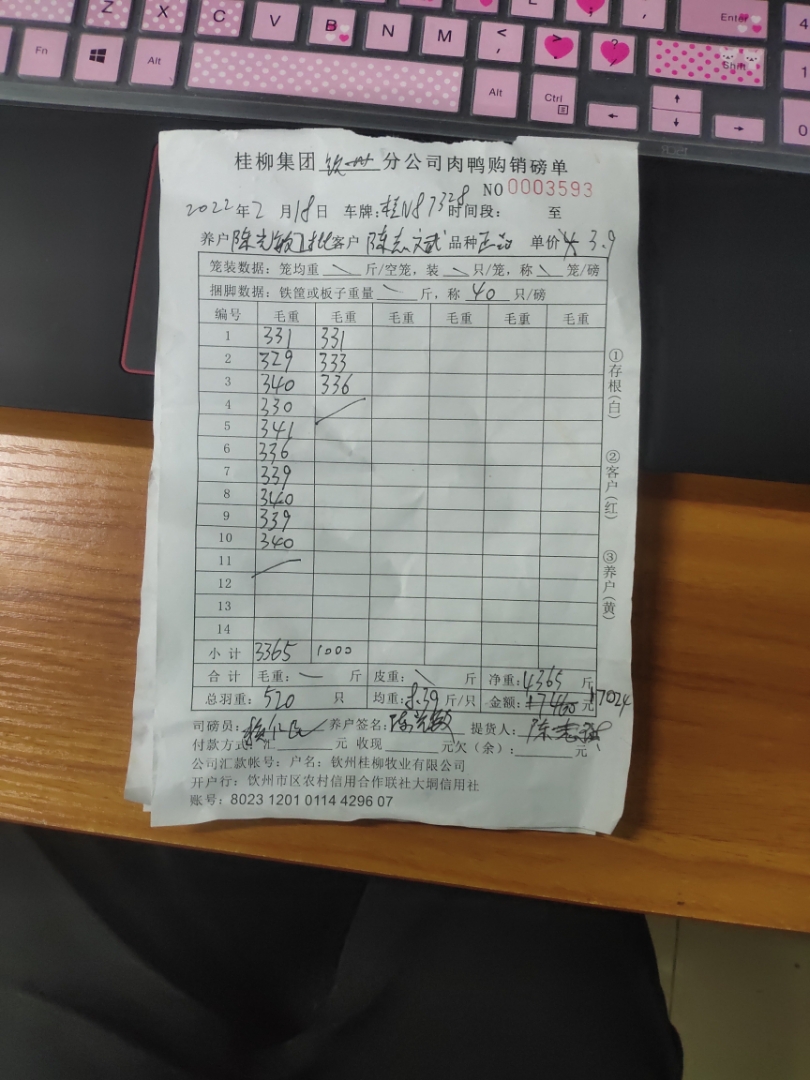 Z X C V B N M < , > . ? / Enter
Fn Alt Alt Ctrl Shift
桂柳集团 钦州 分公司肉鸭购销磅单
NO 0003593
2022年2月18日 车牌:桂N87328 时间段: 至
养户 陈光敏 批 客户 陈志斌 品种 正品 单价 3.9
笼装数据: 笼均重 斤/空笼, 装 只/笼, 称 笼/磅
捆脚数据: 铁筐或板子重量 斤, 称 40 只/磅
编号 毛重 毛重 毛重 毛重 毛重 毛重
1 331 331
2 329 333
3 340 336
4 330
5 341
6 336
7 339
8 340
9 339
10 340
11
12
13
14
小计 3365 1000
合计 毛重: 斤 皮重: 斤 净重: 4365 斤
总羽重: 520 只 均重: 8.39 斤/只 金额: 17460 元 17024
司磅员: 养户签名: 陈光敏 提货人: 陈志斌
付款方式 汇 元 收现 元欠(余): 元
公司汇款帐号: 户名: 钦州桂柳牧业有限公司
开户行: 钦州市区农村信用合作联社大垌信用社
账号: 8023 1201 0114 4296 07
①存根(白)
②客户(红)
③养户(黄)